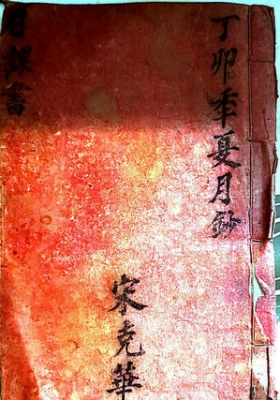 丁卯季夏月鈔
宋克華
日課書